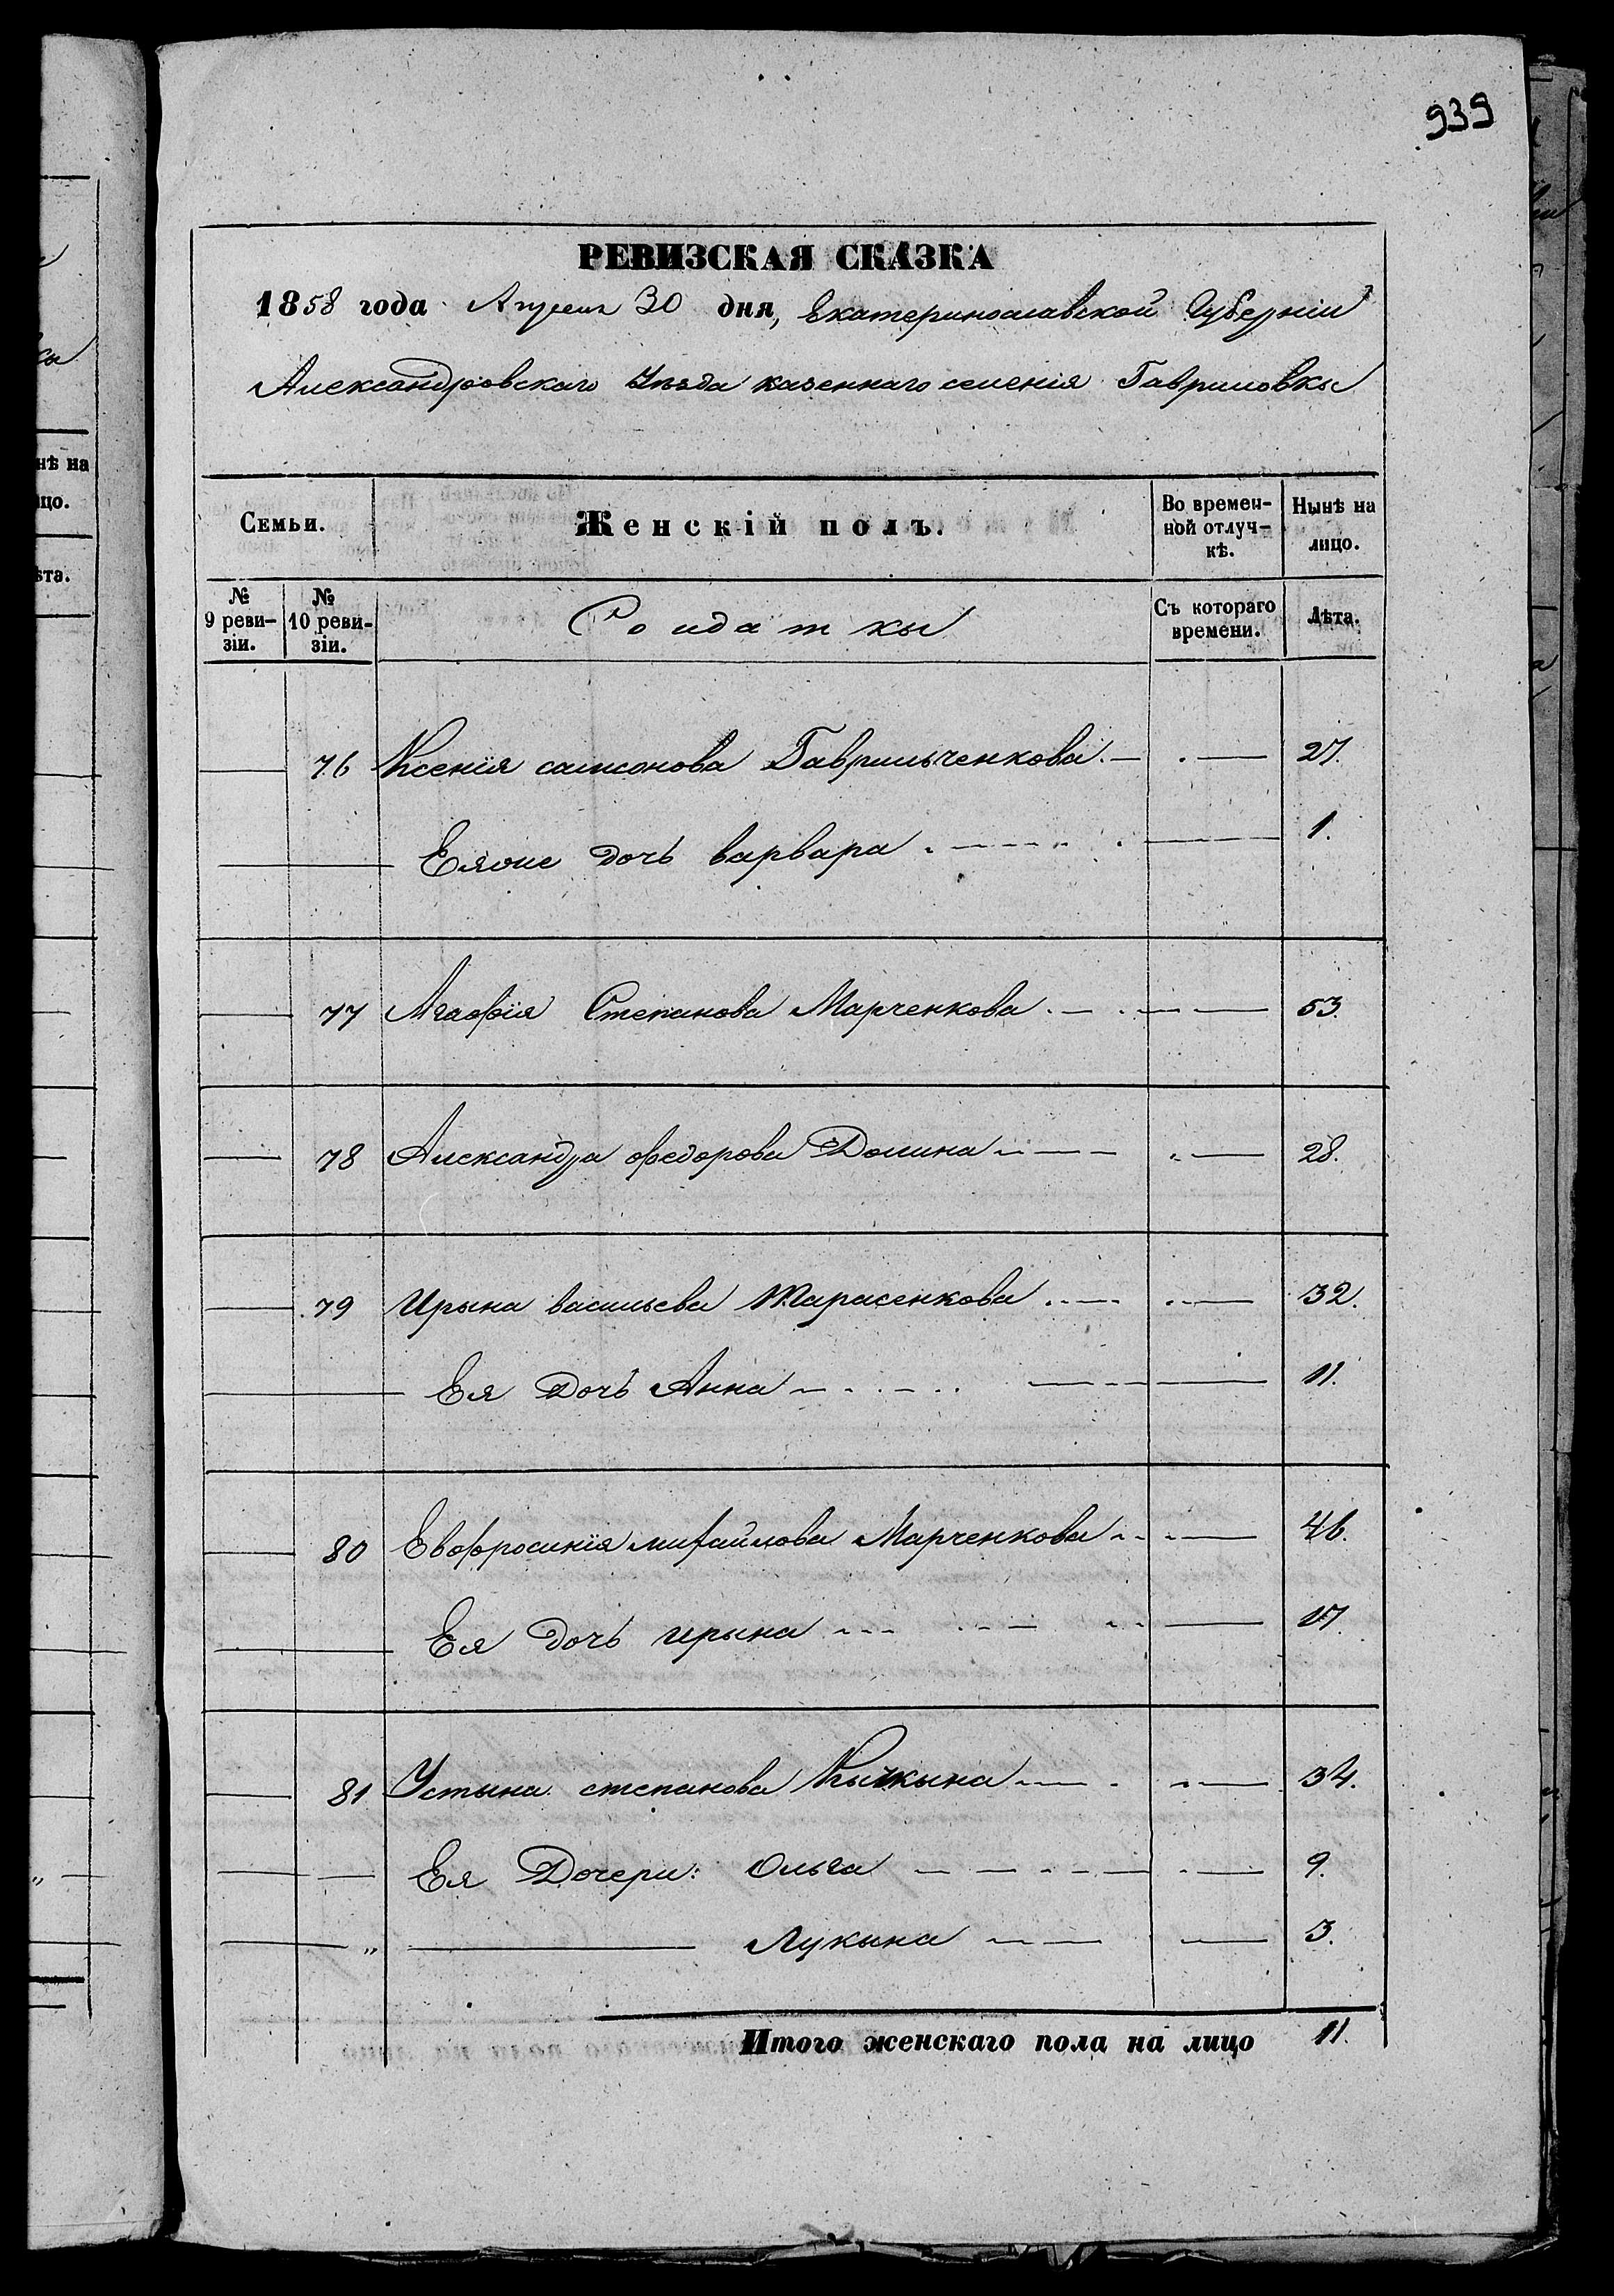 939
РЕВИЗСКАЯ СКАЗКА
1858 года Апреля 30 дня, Екатеринославской Губерніи
Александровскаго Уѣзда казеннаго селенія Гавриловкы
Семьи.
Женскій полъ.
Во времен-
ной отлуч-
кѣ.
Нынѣ на
лицо.
№
9 реви-
зіи.
№
10 реви-
зіи.
Солдаткы
Съ котораго
времени.
Лѣта.
76 Ксенія самсонова Гаврильченкова 27.
Еяже дочь варвара 1.
77 Агафія Степанова Марченкова 53.
78 Александра федорова Долина 28.
79 Ирына васильева Тарасенкова 32.
Ея Дочь Анна 11.
80 Евфросинія михайлова Марченкова 46.
Ея дочь ирына 17.
81 Устына степанова 34.
Ея Дочери: Ольга 9.
" Лукына 3.
Итого женскаго пола на лицо 11.
нѣ на
ицо.
ѣта.